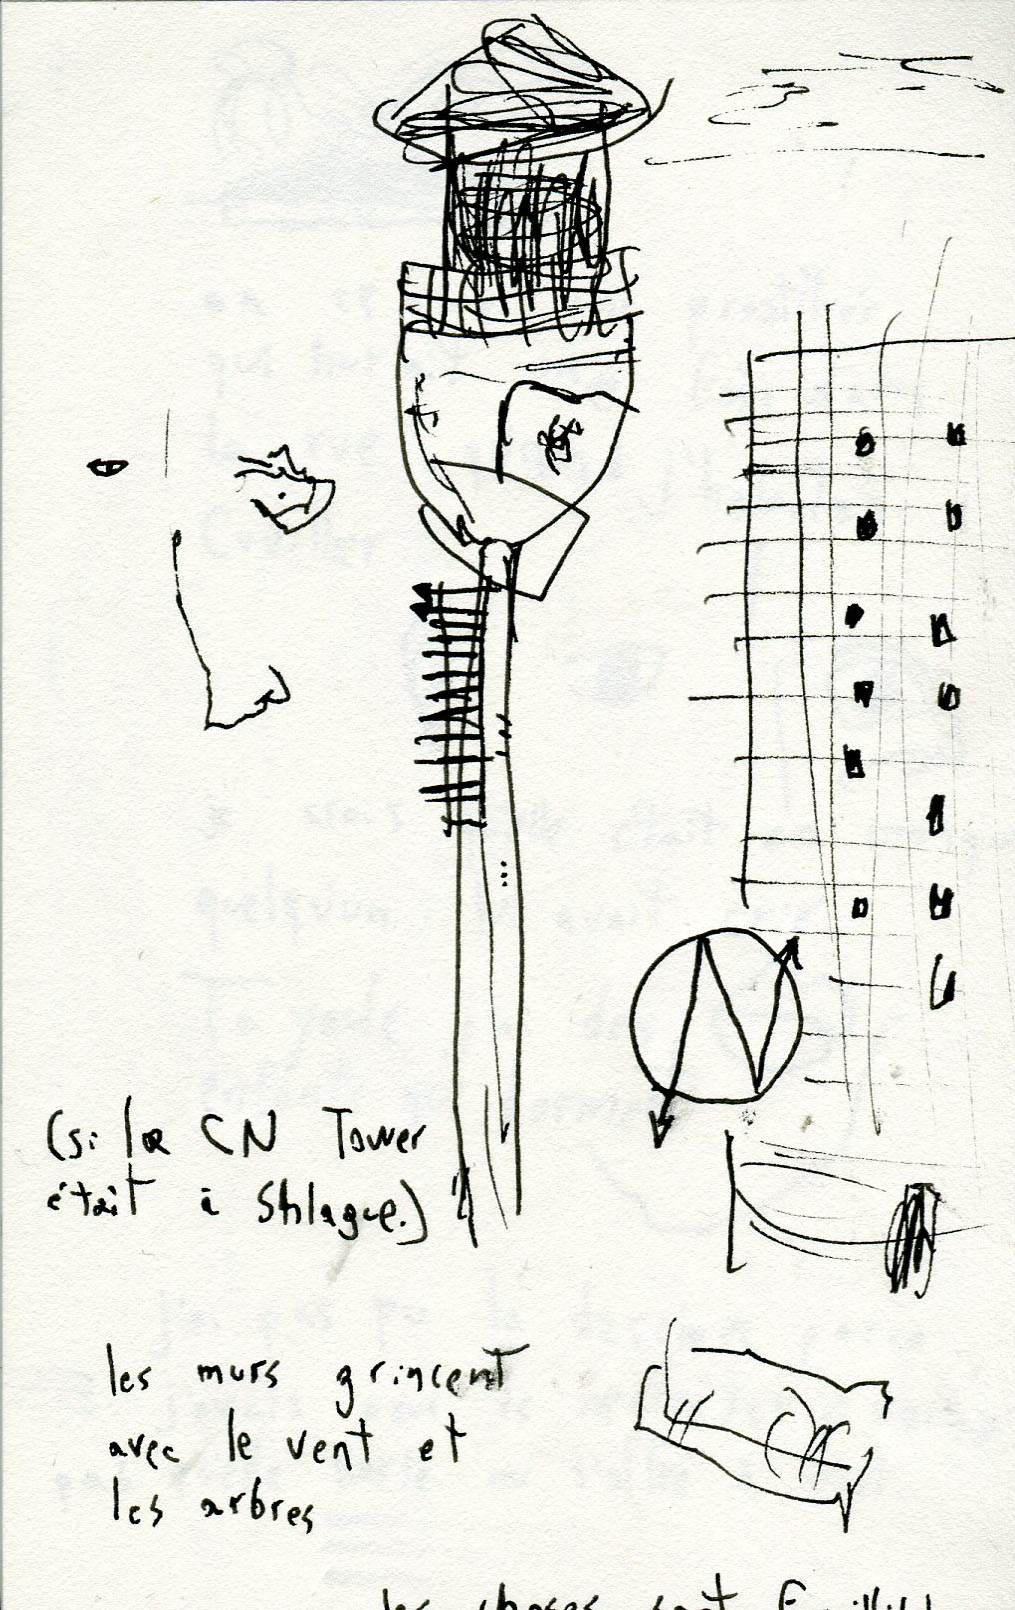 (si la CN Tower
était à Shlague.)
les murs grincent
avec le vent et
les arbres
les choses sont